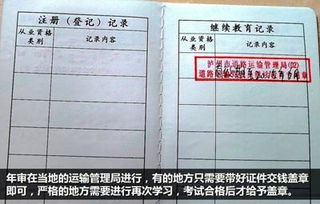 注册（登记）记录
从业资格
类别
记录内容
继续教育记录
从业资格
类别
记录内容
泸州市道路运输管理局(02)
道路
章
年审在当地的运输管理局进行，有的地方只需要带好证件交钱盖章
即可，严格的地方需要进行再次学习，考试合格后才给予盖章。